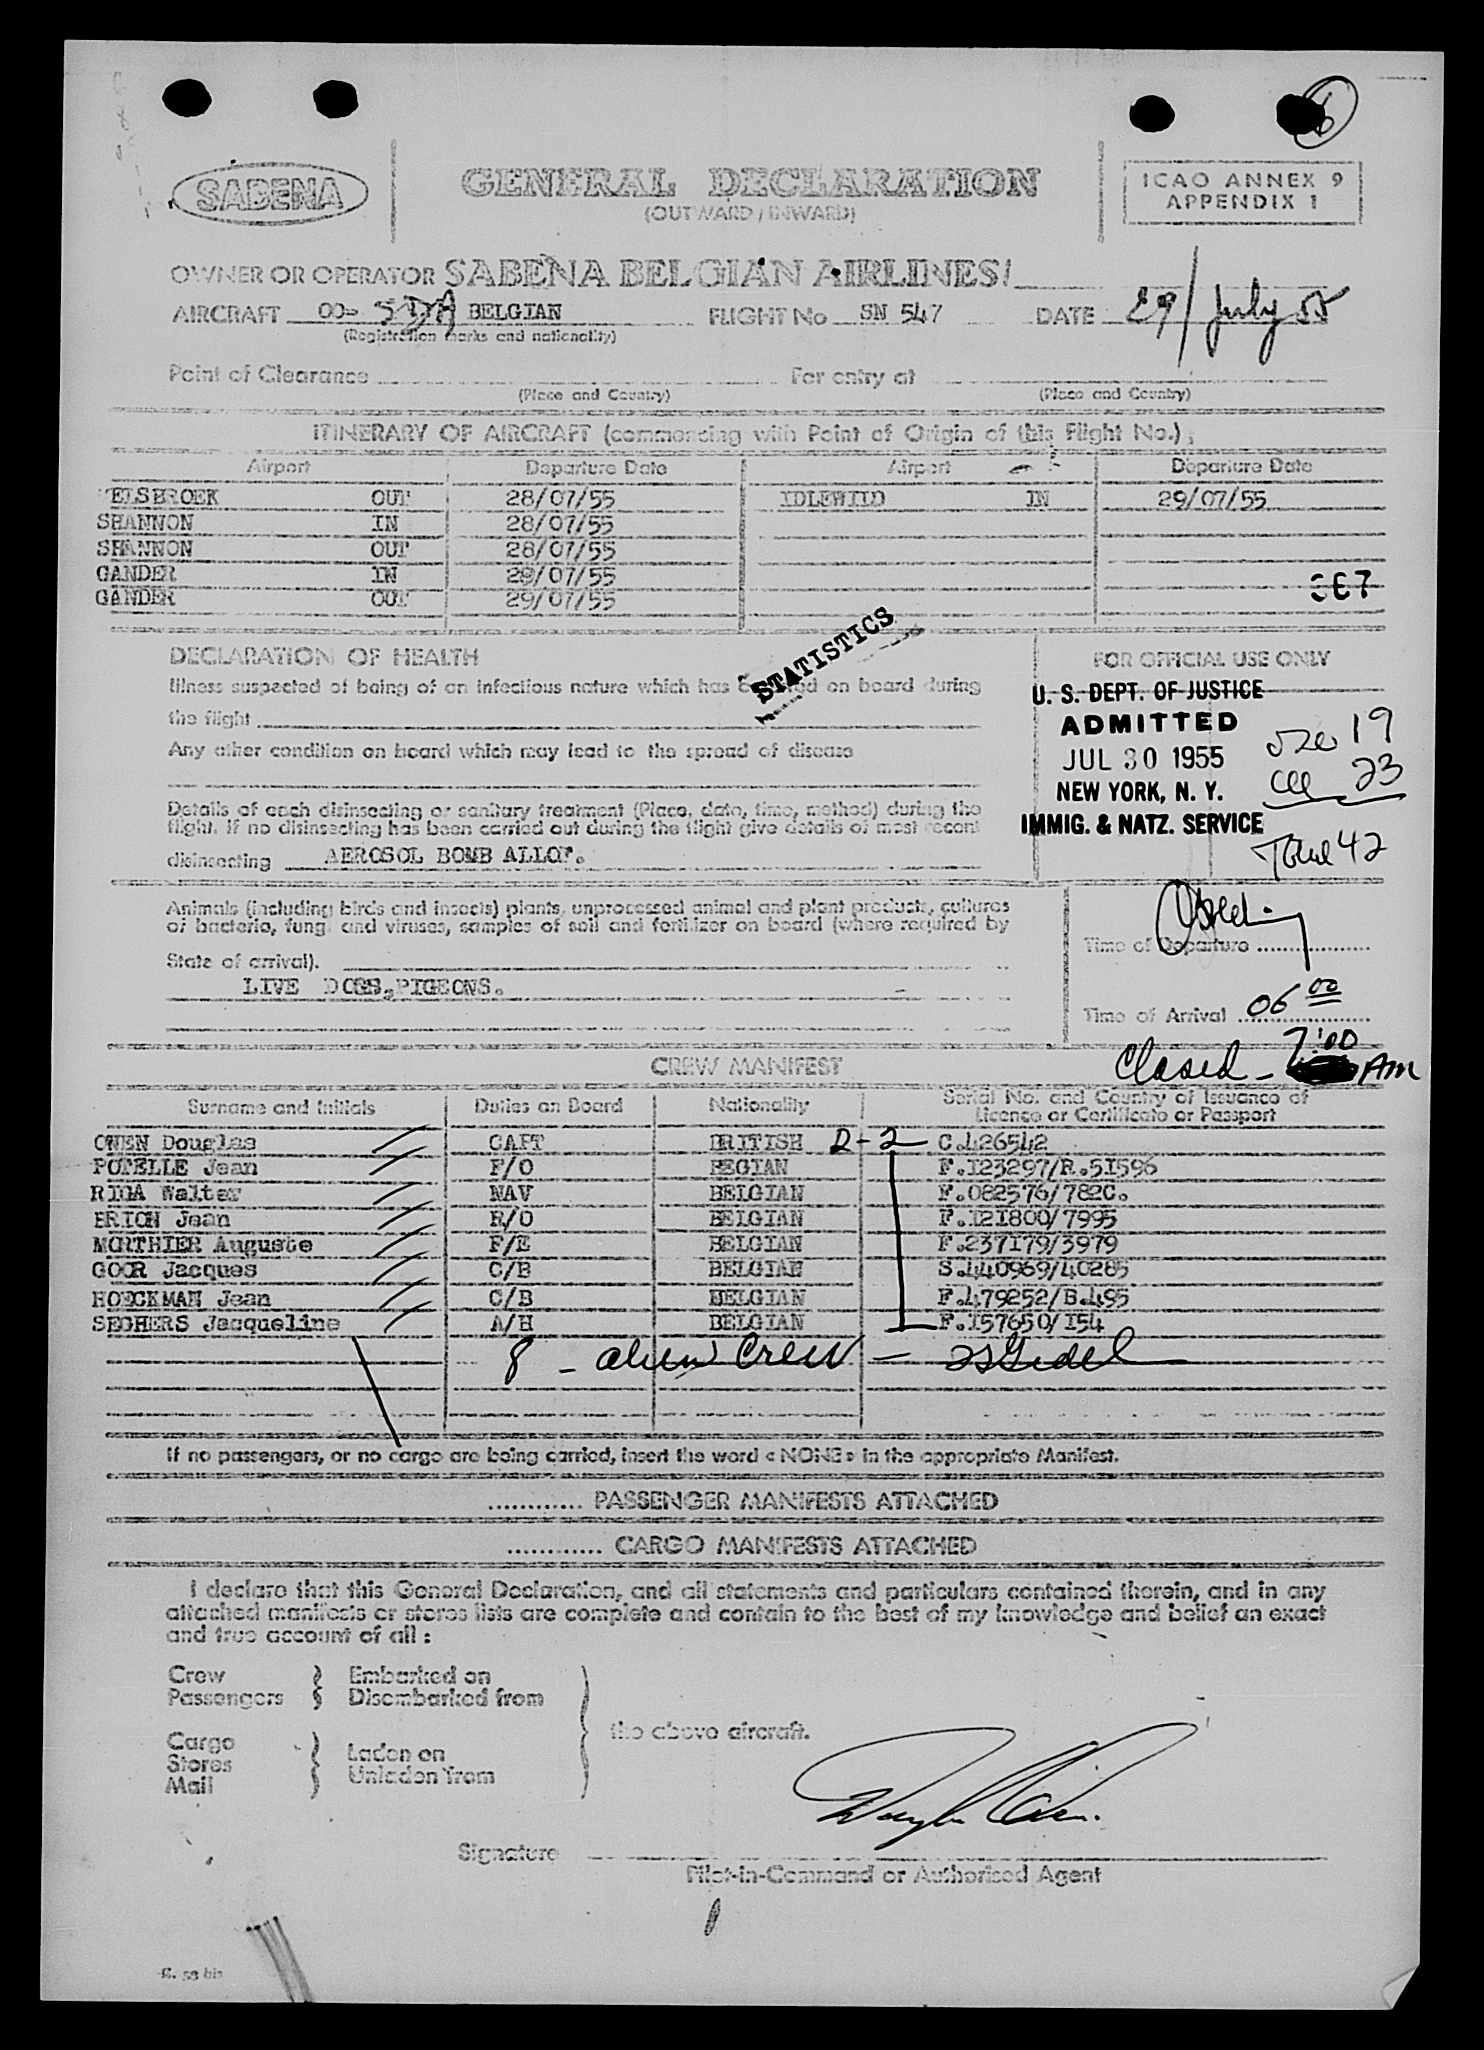 SABENA
GENERAL DECLARATION
(OUTWARD / INWARD)
ICAO ANNEX 9
APPENDIX 1
OWNER OR OPERATOR SABENA BELGIAN AIRLINES
AIRCRAFT OO- BELGIAN FLIGHT No SN 547 DATE 29/July 55
(Registration marks and nationality)
Point of Clearance For entry at
(Place and Country) (Place and Country)
ITINERARY OF AIRCRAFT (commencing with Point of Origin of this Flight No.)
Airport Departure Date Airport Departure Date
MELSBROEK OUT 28/07/55 IDLEWILD IN 29/07/55
SHANNON IN 28/07/55
SHANNON OUT 28/07/55
GANDER IN 29/07/55
GANDER OUT 29/07/55
STATISTICS
DECLARATION OF HEALTH
Illness suspected of being of an infectious nature which has on board during
the flight
Any other condition on board which may lead to the spread of disease
Details of each disinsecting or sanitary treatment (Place, date, time, method) during the
flight. If no disinsecting has been carried out during the flight give details of most recent
disinsecting AEROSOL BOMB ALLOT.
FOR OFFICIAL USE ONLY
U. S. DEPT. OF JUSTICE
ADMITTED
JUL 30 1955
NEW YORK, N. Y.
IMMIG. & NATZ. SERVICE
19
23
Total 42
Animals (including birds and insects) plants, unprocessed animal and plant products, cultures
of bacteria, fungi and viruses, samples of soil and fertilizer on board (where required by
State of arrival).
LIVE DOGS, PIGEONS.
Time of Departure
Time of Arrival 06 00
Closed - 7:00 AM
CREW MANIFEST
Surname and Initials Duties on Board Nationality Serial No. and Country of Issuance of
Licence or Certificate or Passport
OWEN Douglas CAPT BRITISH D-2 C.426542
POTELLE Jean F/O BEGIAN F.123297/R.51596
RIGA Walter NAV BELGIAN F.082576/782C.
BRICH Jean R/O BELGIAN F.121800/7995
MORTHIER Auguste F/E BELGIAN F.237179/3979
GOOR Jacques C/B BELGIAN S.440969/40285
HOECKMAN Jean C/B BELGIAN F.479252/B.495
SEGHERS Jacqueline A/H BELGIAN F.157650/154
8 - alien Crew -
If no passengers, or no cargo are being carried, insert the word « NONE » in the appropriate Manifest.
............ PASSENGER MANIFESTS ATTACHED
............ CARGO MANIFESTS ATTACHED
I declare that this General Declaration, and all statements and particulars contained therein, and in any
attached manifests or stores lists are complete and contain to the best of my knowledge and belief an exact
and true account of all :
Crew Embarked on
Passengers Disembarked from
the above aircraft.
Cargo
Stores Laden on
Mail Unladen from
Signature
Pilot-in-Command or Authorised Agent